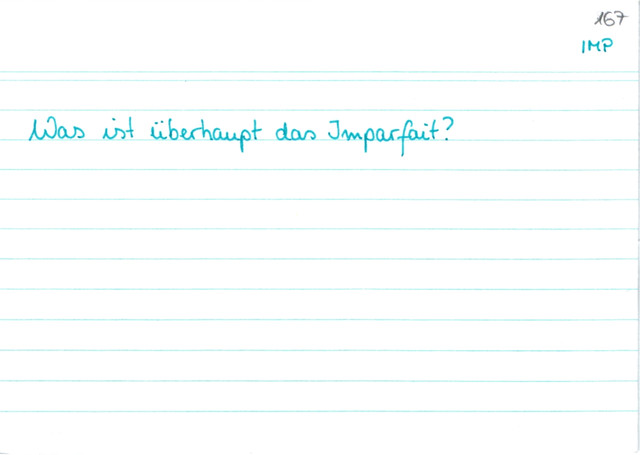 167
IMP
Was ist überhaupt das Imparfait?